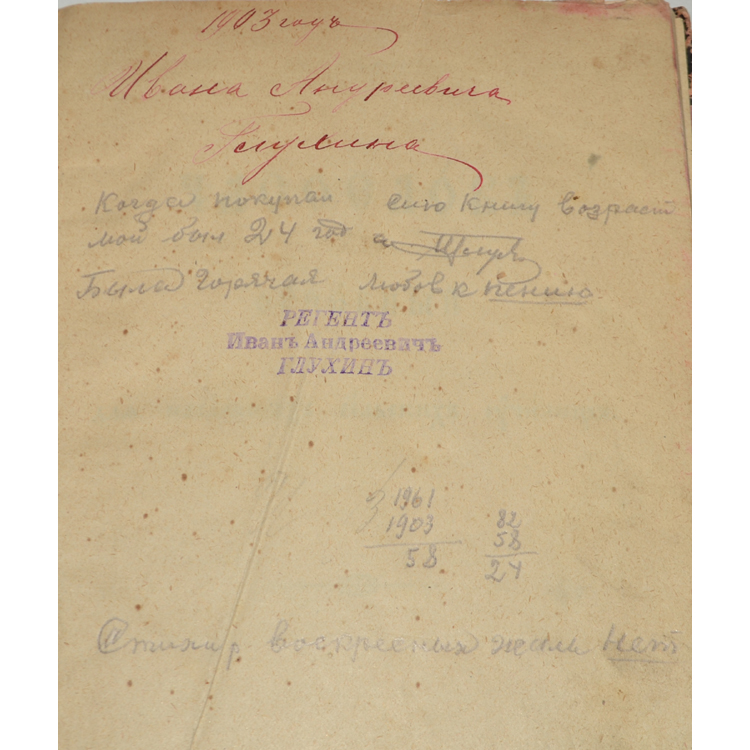 1903 годъ
Ивана Андреевича
Глухина
Когда покупал сию книгу возраст
мой был 24 год
Была горячая любов к пению
РЕГЕНТЪ
Иванъ Андреевичъ
ГЛУХИНЪ
1961
1903 82
58
58 24
Стихир воскресных жаль нет